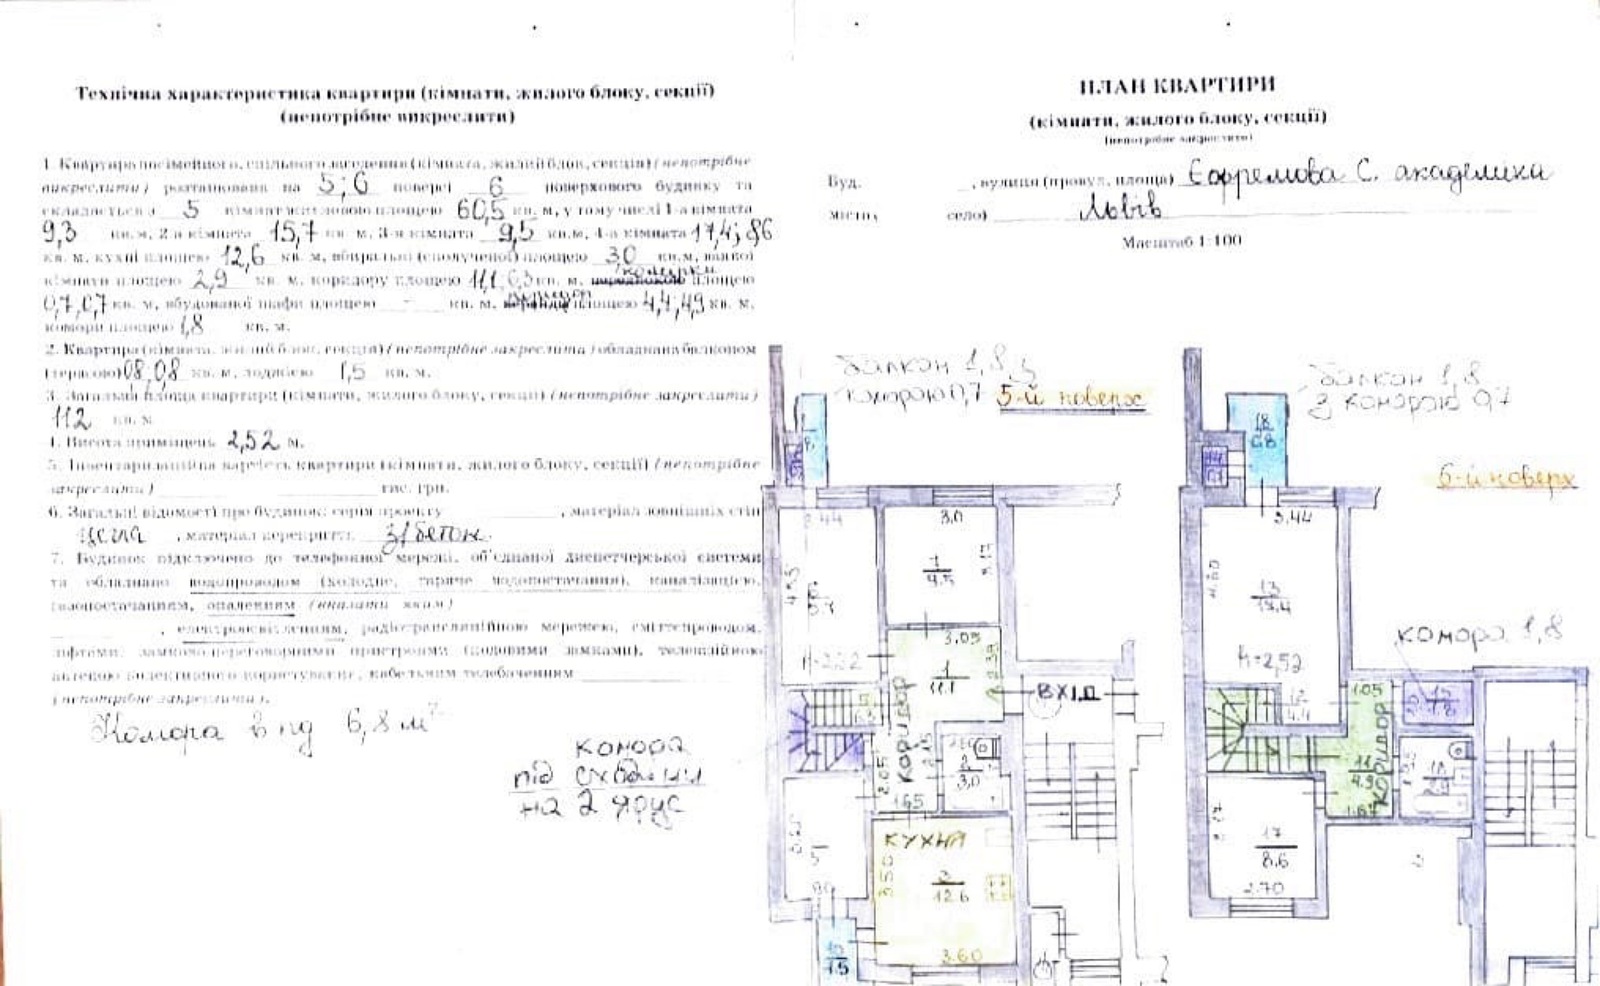 Технічна характеристика квартири (кімнати, жилого блоку, секції)
(непотрібне викреслити)
1. Квартира посімейного, спільного заселення (кімната, жилий блок, секція) (непотрібне
викреслити) розташована на 5; 6 поверсі 6 поверхового будинку та
складається з 5 кімнат житловою площею 60,5 кв. м, у тому числі 1-а кімната
9,3 кв.м, 2-а кімната 15,7 кв. м, 3-я кімната 9,5 кв.м, 4-а кімната 17,4; 8,6
кв. м, кухні площею 12,6 кв. м, вбиральні (сполученої) площею 3,0 кв.м, ванної
кімнати площею 2,9 кв. м, коридору площею 11,1 6,3 кв. м, комірки площею
0,7, 0,7 кв. м, вбудованої шафи площею - кв. м, площею 4,4; 4,9 кв. м,
комори площею 1,8 кв. м.
2. Квартира (кімната, жилий блок, секція) (непотрібне закреслити) обладнана балконом
(терасою) 0,8; 0,8 кв. м, лоджією 1,5 кв. м.
3. Загальна площа квартири (кімнати, жилого блоку, секції) (непотрібне закреслити)
112 кв. м
4. Висота приміщень 2,52 м.
5. Інвентаризаційна вартість квартири (кімнати, жилого блоку, секції) (непотрібне
закреслити) тис. грн.
6. Загальні відомості про будинок: серія проекту , матеріал зовнішніх стін
цегла , матеріал перекриття з/бетон.
7. Будинок підключено до телефонної мережі, об'єднаної диспетчерської системи
та обладнано водопроводом (холодне, гаряче водопостачання), каналізацією,
газопостачанням, опаленням (вказати яким)
, електроосвітленням, радіотрансляційною мережею, сміттєпроводом,
ліфтами, замково-переговорними пристроями (кодовими замками), телевізійною
антеною колективного користування, кабельним телебаченням
(непотрібне закреслити).
Комора в пд 6,8 м²
комора
під сходами
на 2 ярус
ПЛАН КВАРТИРИ
(кімнати, жилого блоку, секції)
(непотрібне закреслити)
Буд. , вулиця (провул, площа) Єфремова С. академіка
місто, село) Львів
Масштаб 1:100
балкон 1,8 з
коморою 0,7 5-й поверх
3.44
4.55
H=2,52
3.0
1
9.5
3.05
1
11.1
2.39
ВХІД
КОРИДОР
2.05
2.15
1.45
2
3,0
КУХНЯ
3.50
3
12.6
3.60
5
10
1.5
балкон 1,8
з коморою 0,7
6-й поверх
18
0.8
14
0.7
3.44
13
17.4
h=2,52
комора 1,8
12
4.4
1.05
15
1.8
КОРИДОР
11
4.9
1.67
17
8.6
2.70